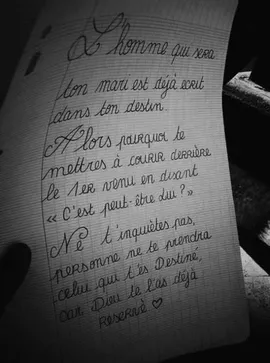 L'homme qui sera
ton mari est déjà ecrit
dans ton destin.
Alors pourquoi te
mettres à courir derrière
le 1er venu en disant
« C'est peut-être lui ? »
Ne t'inquiètes pas,
personne ne te prendra
celui qui t'es Destiné,
car Dieu te l'as déjà
reservé ♡